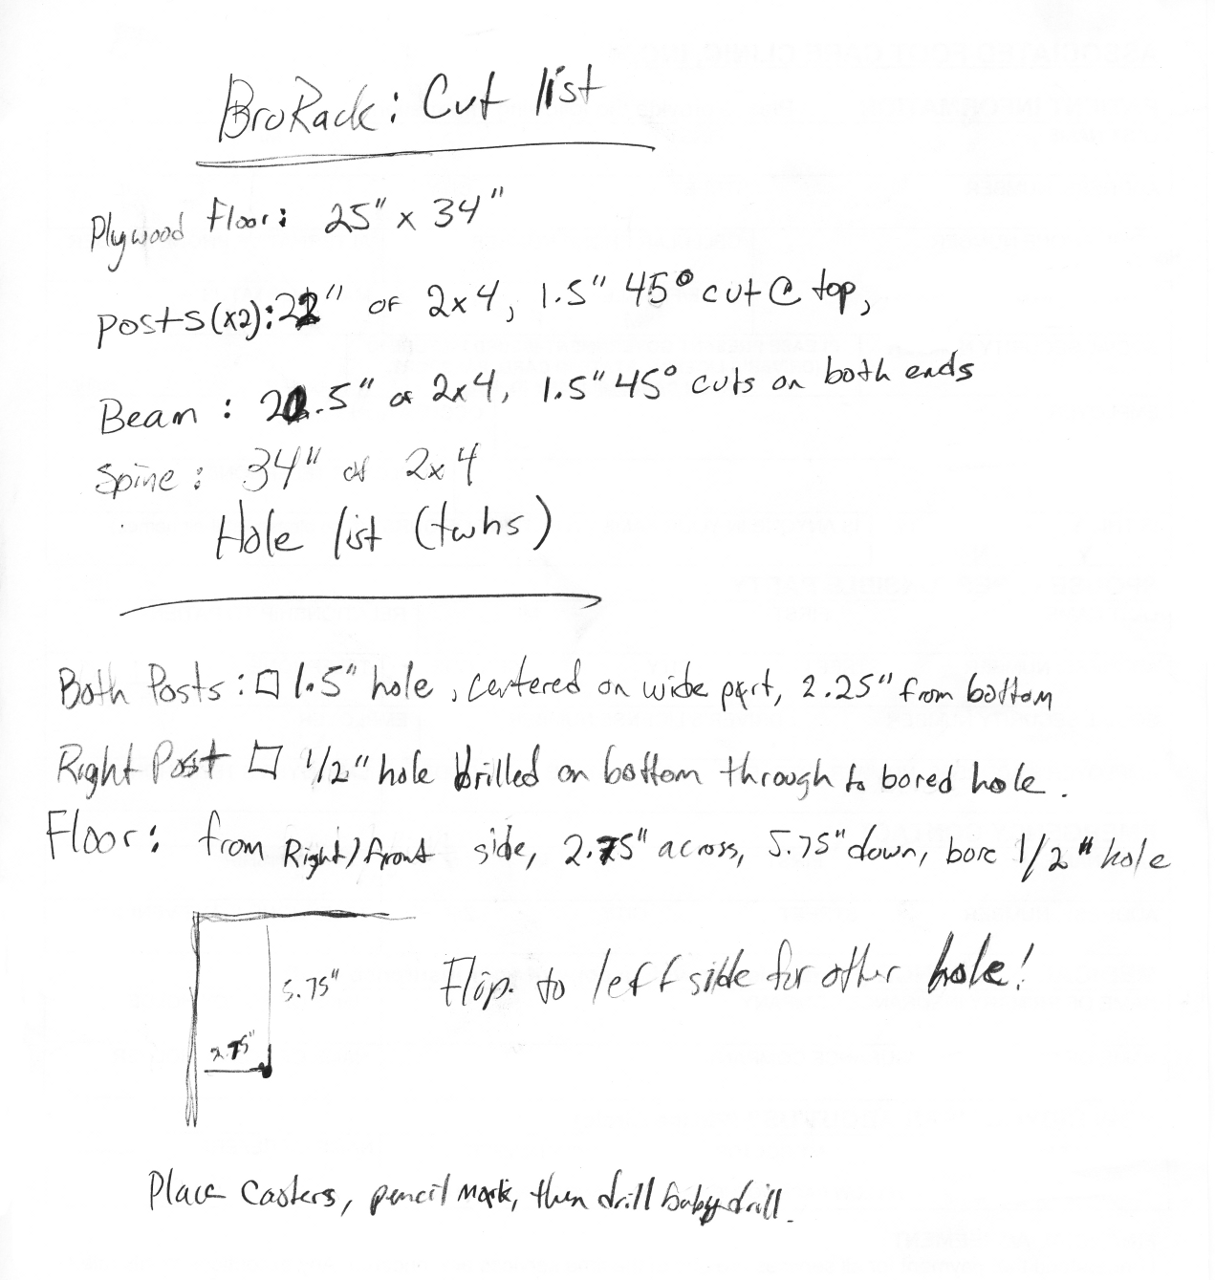 BroRack: Cut list
Plywood Floor: 25" x 34"
Posts(x2): 22" of 2x4, 1.5" 45° cut @ top,
Beam: .5" of 2x4, 1.5" 45° cuts on both ends
Spine: 34" of 2x4
Hole list (twhs)
Both Posts: 1.5" hole, centered on wide part, 2.25" from bottom
Right Post 1/2" hole drilled on bottom through to bored hole.
Floor: from Right/front side, 2.75" across, 5.75" down, bore 1/2" hole
5.75"
Flip to left side for other hole!
2.75"
Place Casters, pencil mark, then drill baby drill.